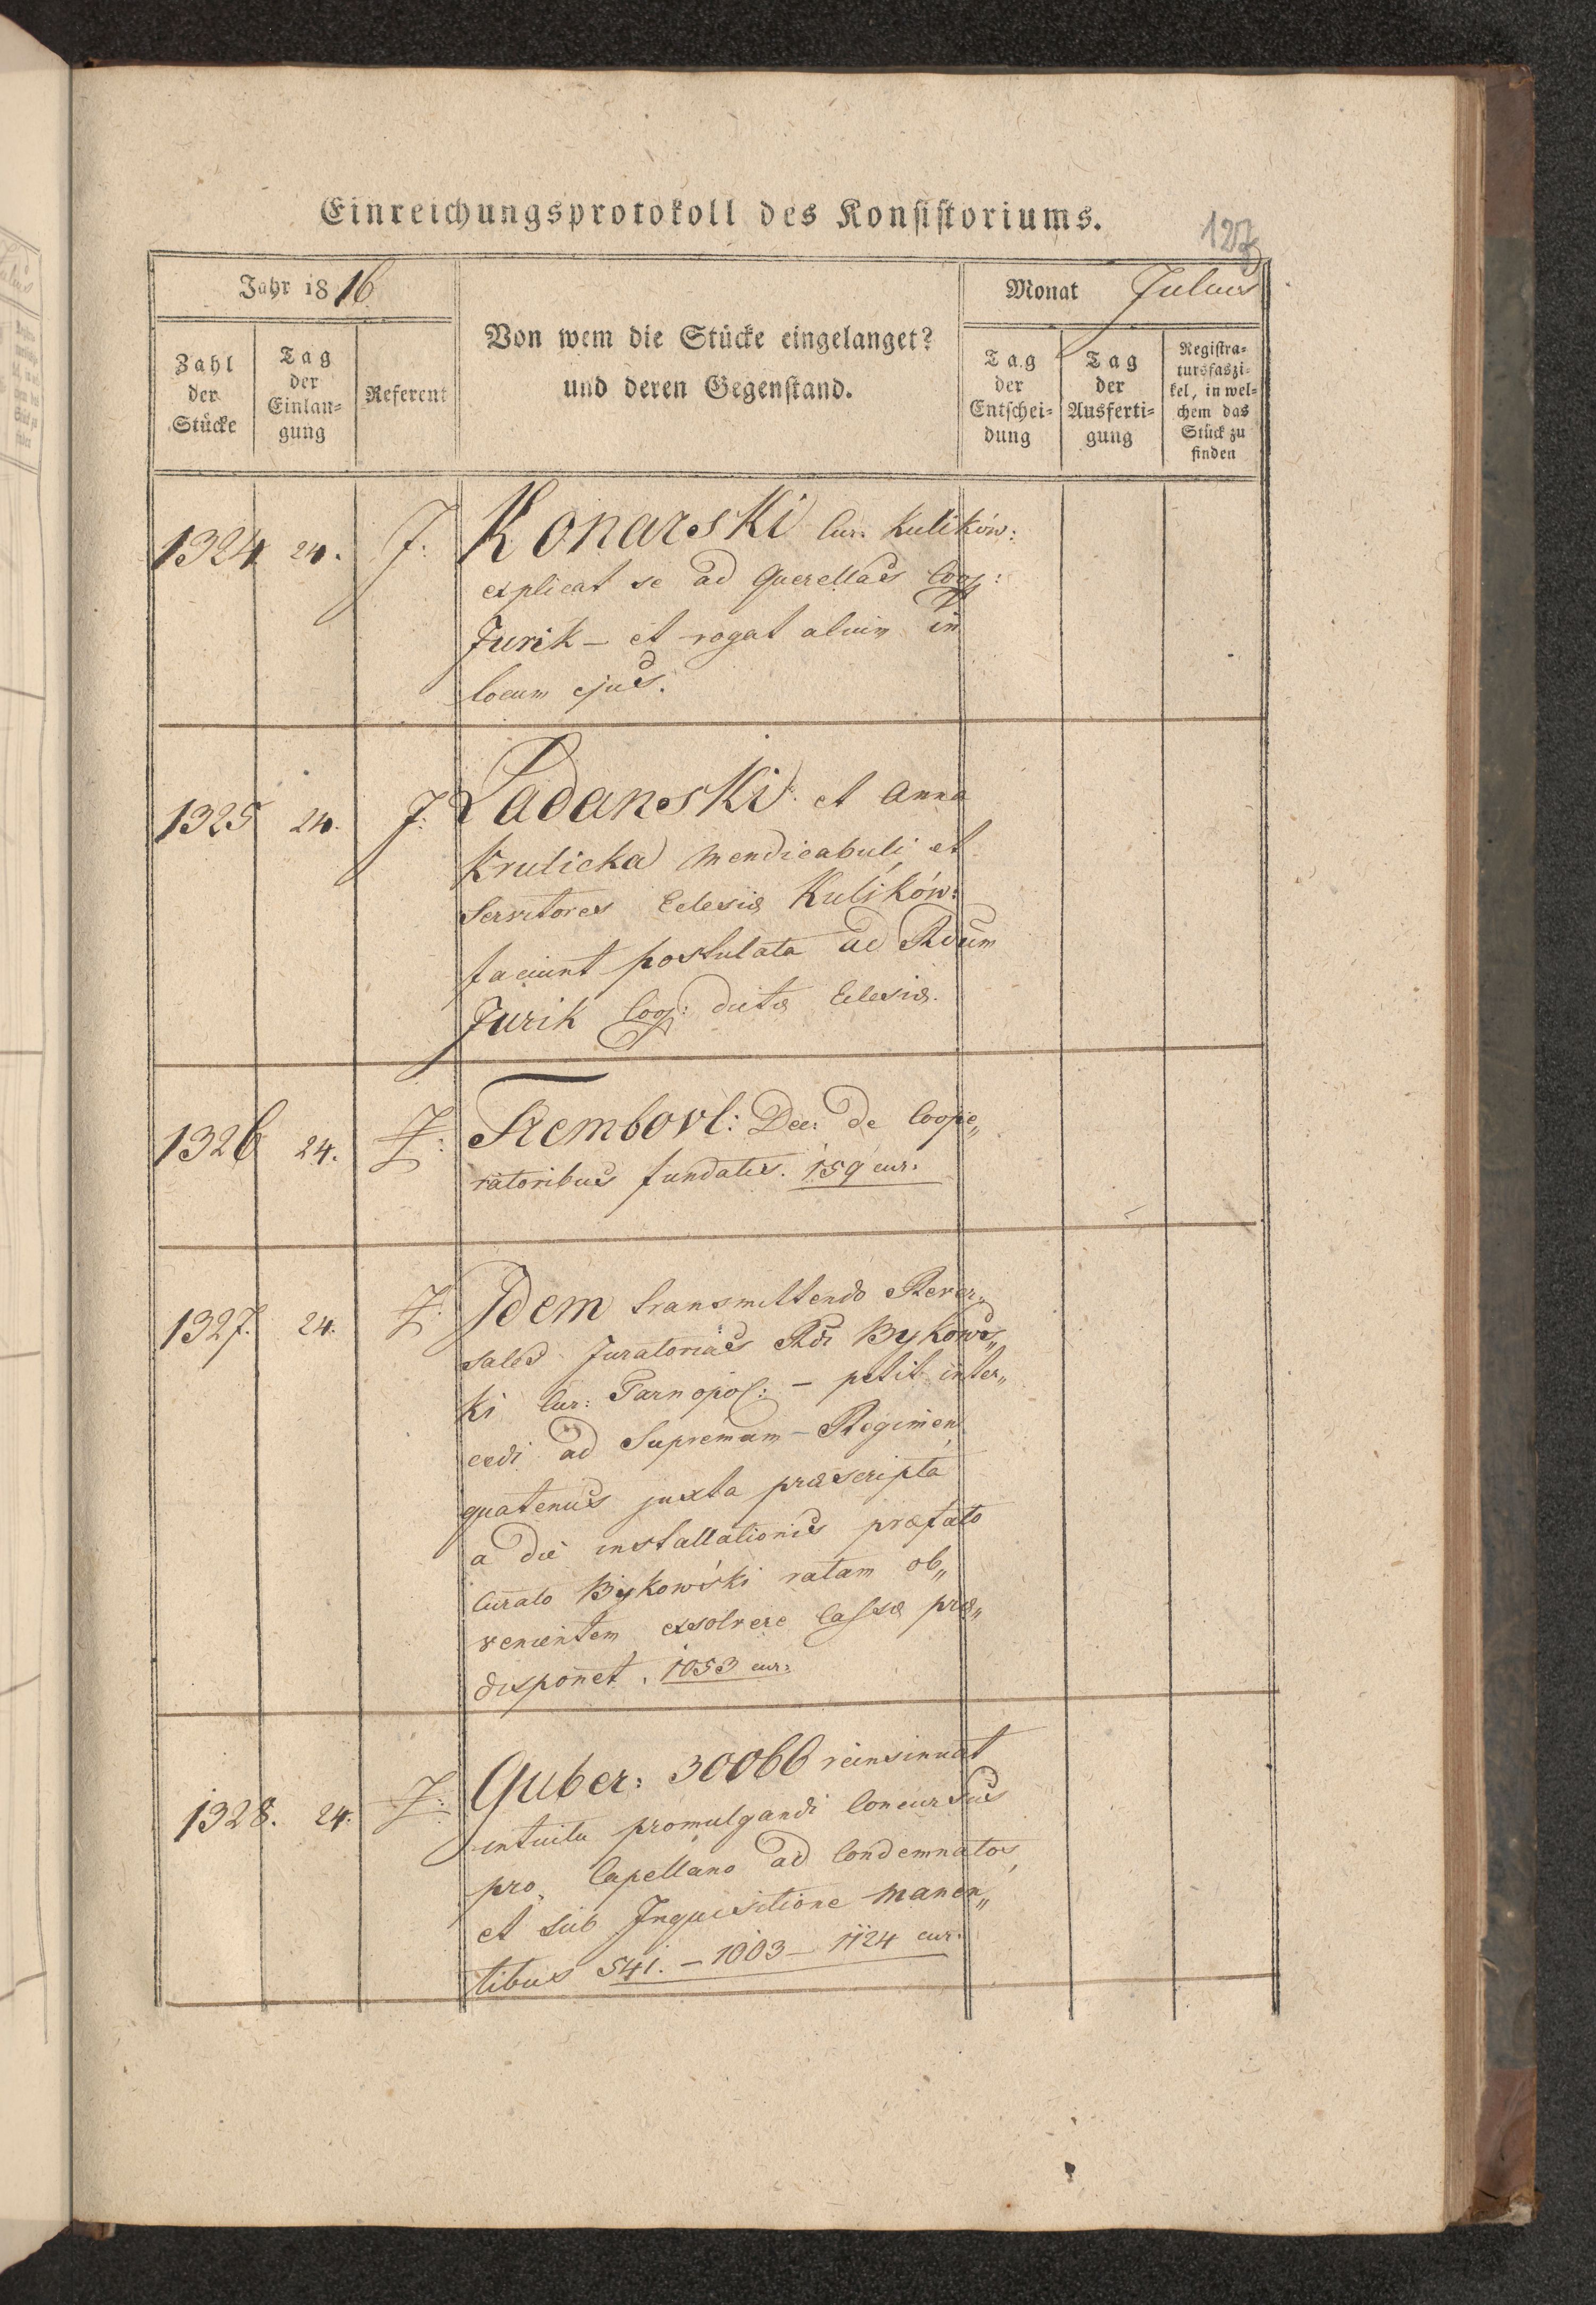 Einreichungsprotokoll des Konsistoriums.
127
Jahr 1816
Monat Julius
Zahl der Stücke
Tag der Einlan=gung
Referent
Von wem die Stücke eingelanget?
und deren Gegenstand.
Tag der Entschei=dung
Tag der Ausferti=gung
Registra=tursfaszi=kel, in wel=chem das Stück zu finden
1324 24. J: Konarski Cur. Kulików:
explicat se ad Querellas Coop:
Jurik – et rogat alium in
locum ejus.
1325 24. J: Ladanski et Anna
Krulicka mendicabuli et
Servitores Eclesiæ Kulików:
faciunt postulata ad Rdum
Jurik Coop: dictæ Eclesiæ.
1326 24. J: Trembovl: Dec: De Coope„
ratoribus fundatis. 159 cur:
1327. 24. J: Idem transmittendo Rever„
sales Juratorias Rdi Bykows„
ki Cur: Tarnopol: – petit inter„
cedi ad Supremum Regimen
quatenus juxta præscripta
a die installationis præfato
Curato Bykowski ratam ob„
venientem exsolvere Cassæ præ„
disponet. 1053 cur:
1328. 24. J: Guber: 30066 reinsinuat
intuitu promulgandi Concursus
pro Capellano ad Condemnatos
et sub Inquisitione manen„
tibus 541. – 1003 – 1124 cur.